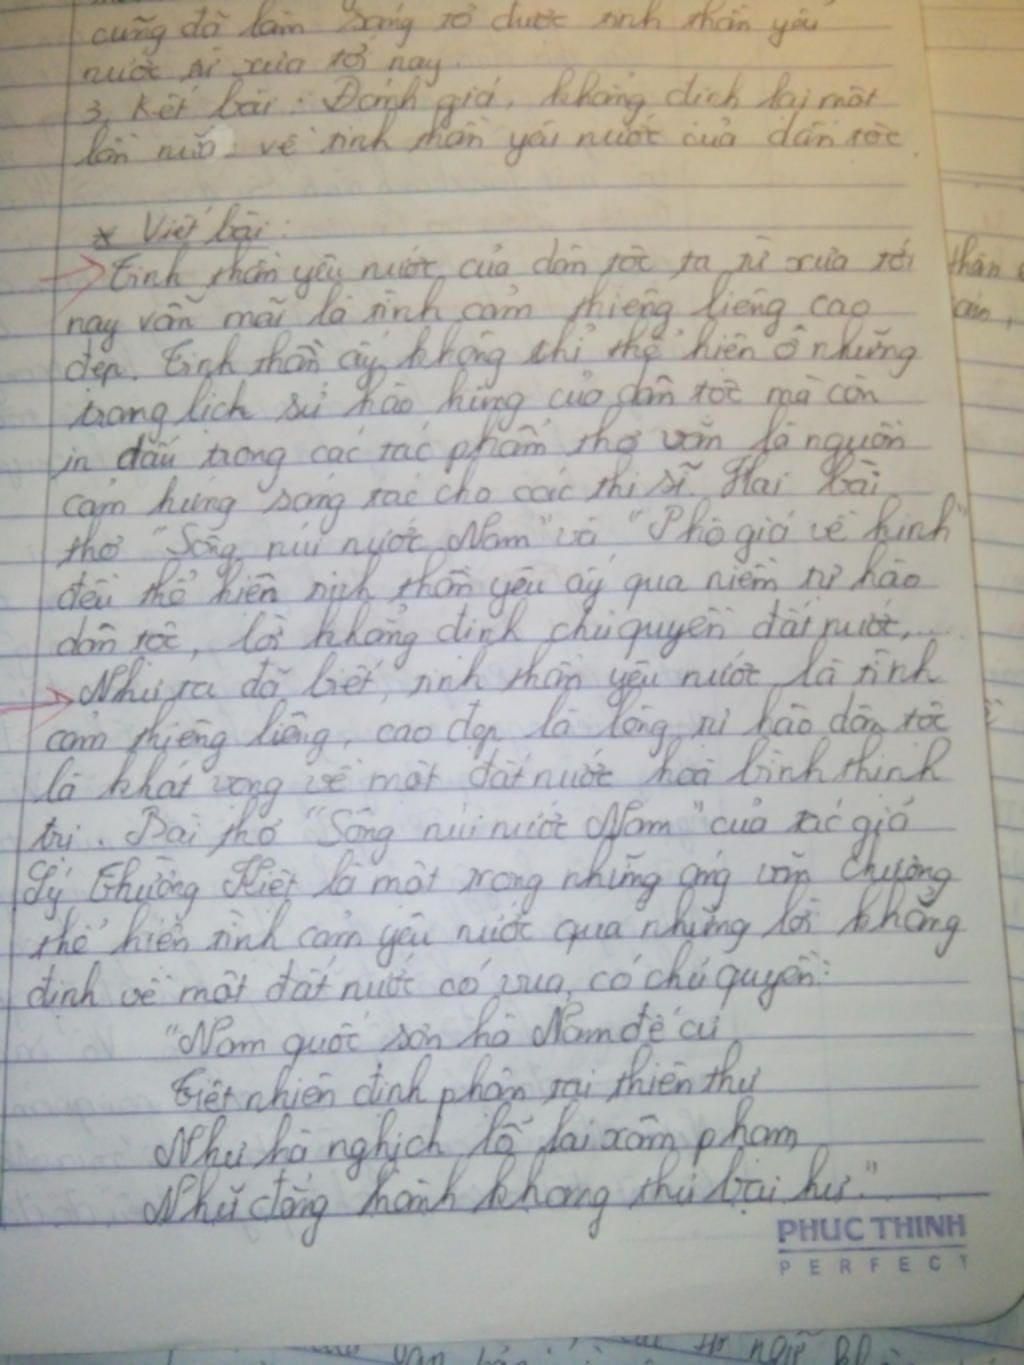 cũng đã làm sáng tỏ được tinh thần yêu
nước từ xưa tới nay.
3, Kết bài: Đánh giá, khẳng định lại một
lần nữa về tinh thần yêu nước của dân tộc.
* Viết bài:
Tinh thần yêu nước của dân tộc ta từ xưa tới
nay vẫn mãi là tình cảm thiêng liêng cao
đẹp. Tinh thần ấy không chỉ thể hiện ở những
trang lịch sử hào hùng của dân tộc mà còn
in dấu trong các tác phẩm thơ văn là nguồn
cảm hứng sáng tác cho các thi sĩ. Hai bài
thơ "Sông núi nước Nam" và "Phò giá về kinh"
đều thể hiện tinh thần yêu ấy qua niềm tự hào
dân tộc, lời khẳng định chủ quyền đất nước,...
Như ta đã biết, tinh thần yêu nước là tình
cảm thiêng liêng, cao đẹp là lòng tự hào dân tộc
là khát vọng về một đất nước hoà bình thịnh
trị. Bài thơ "Sông núi nước Nam" của tác giả
Lý Thường Kiệt là một trong những áng văn chương
thể hiện tình cảm yêu nước qua những lời khẳng
định về một đất nước có vua, có chủ quyền:
"Nam quốc sơn hà Nam đế cư
Tiệt nhiên định phận tại thiên thư
Như hà nghịch lỗ lai xâm phạm
Nhữ đẳng hành khang thủ bại hư."
PHUC THINH
PERFECT